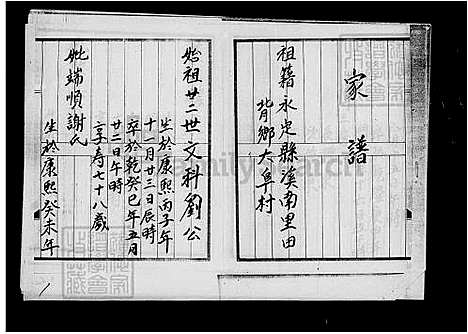 家譜
祖籍永定縣溪南里田
背鄉大阜村
始祖廿二世文科劉公
生於康熙丙子年
十一月廿三日辰時
卒於乾癸巳年五月
廿二日午時
享寿七十八歲
妣端順謝氏
生於康熙癸未年